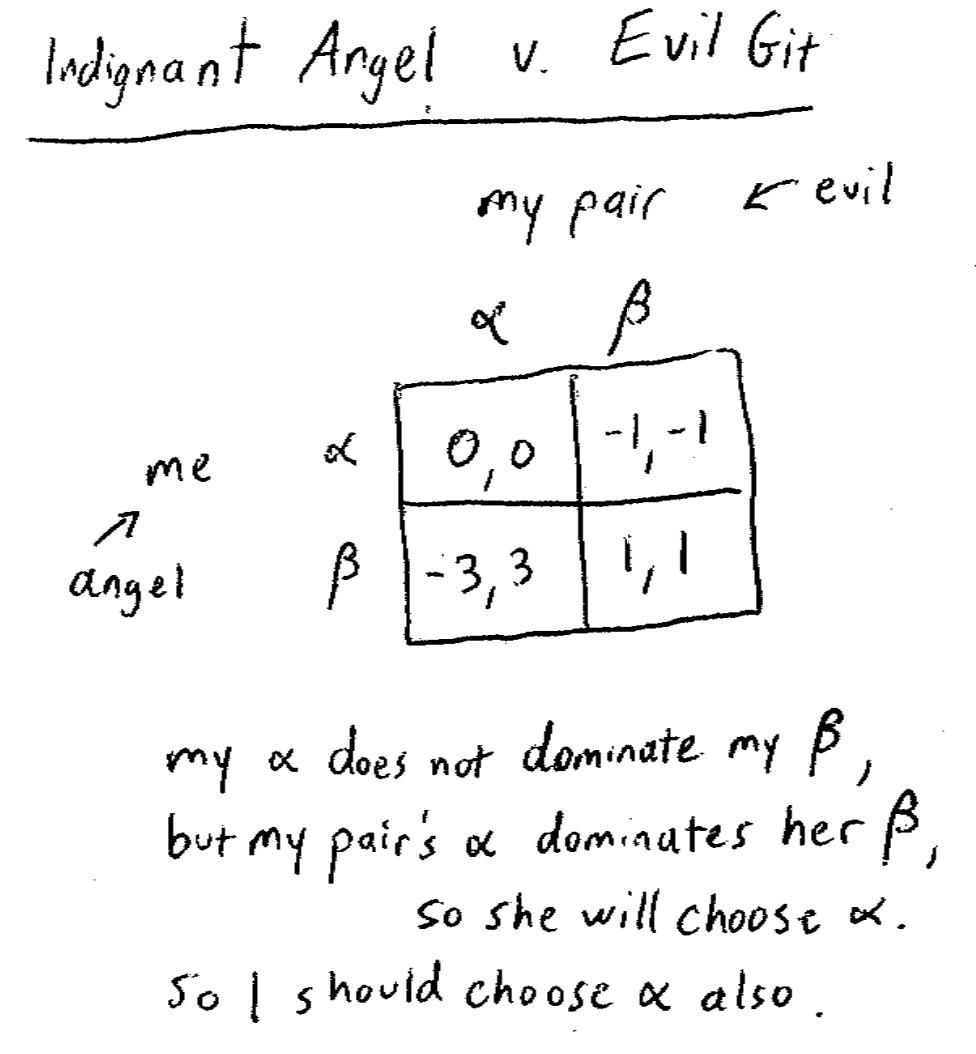 Indignant Angel v. Evil Git
my pair ← evil
α β
me α 0, 0 -1, -1
↗
angel β -3, 3 1, 1
my α does not dominate my β,
but my pair's α dominates her β,
so she will choose α.
So I should choose α also.